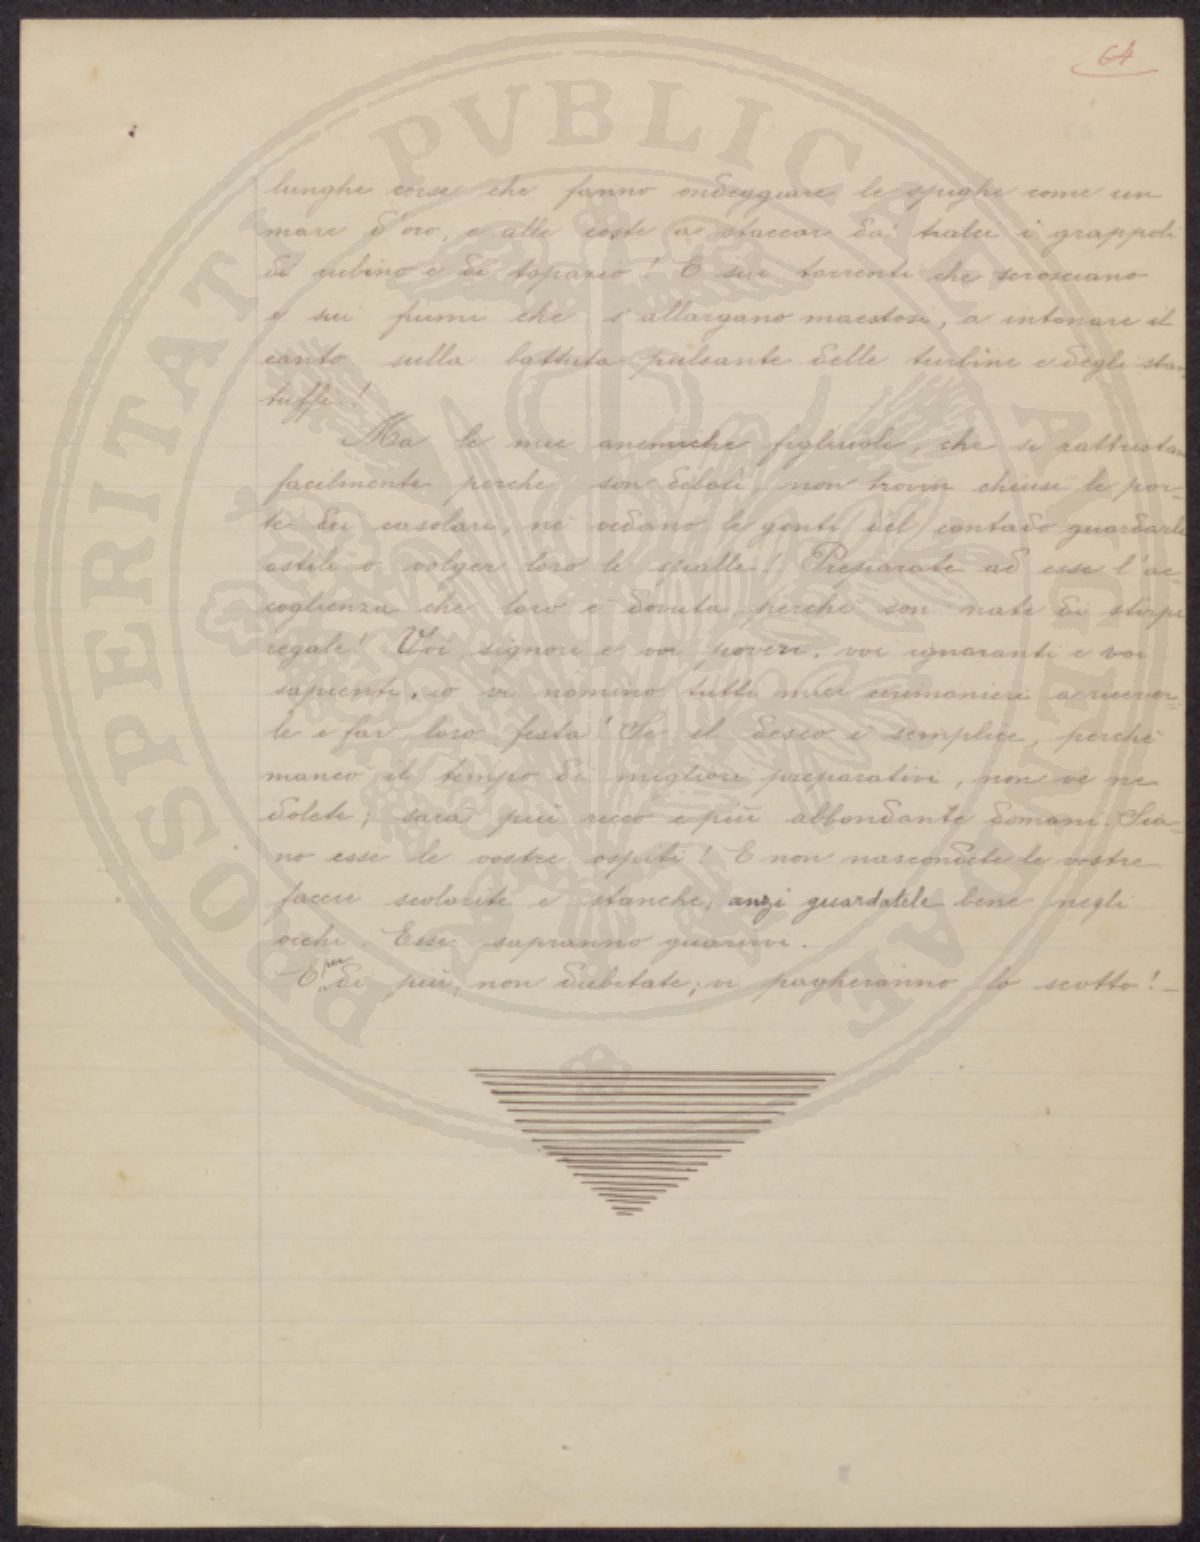 64
lunghe corse che fanno ondeggiare le spighe come un
mare d'oro, e alle coste a staccar da' tralci i grappoli
di rubino e di topazio! E sui torrenti che scrosciano
e sui fiumi che s'allargano maestosi, a intonare il
canto sulla battuta pulsante delle turbine e degli stan
tuffi!
Ma le mie anemiche figliuole, che si rattristan
facilmente perchè son deboli, non trovin chiuse le por-
te dei casolari, nè vedano le genti del contado guardarle
ostili o volger loro le spalle! Preparate ad esse l'ac-
coglienza che loro è dovuta, perchè son nate di stirpe
regale! Voi signori e voi poveri, voi ignoranti e voi
sapienti, io vi nomino tutti miei cerimonieri a ricever-
le e far loro festa! Se il desco è semplice, perchè
mancò il tempo di migliori preparativi, non ve ne
dolete; sarà più ricco e più abbondante domani. Sia-
no esse le vostre ospiti! E non nascondete le vostre
facce scolorite e stanche, anzi guardatele bene negli
occhi. Esse sapranno guarirvi.
E per di più, non dubitate, vi pagheranno lo scotto!
PROSPERITATI PVBLICAE AVGENDAE